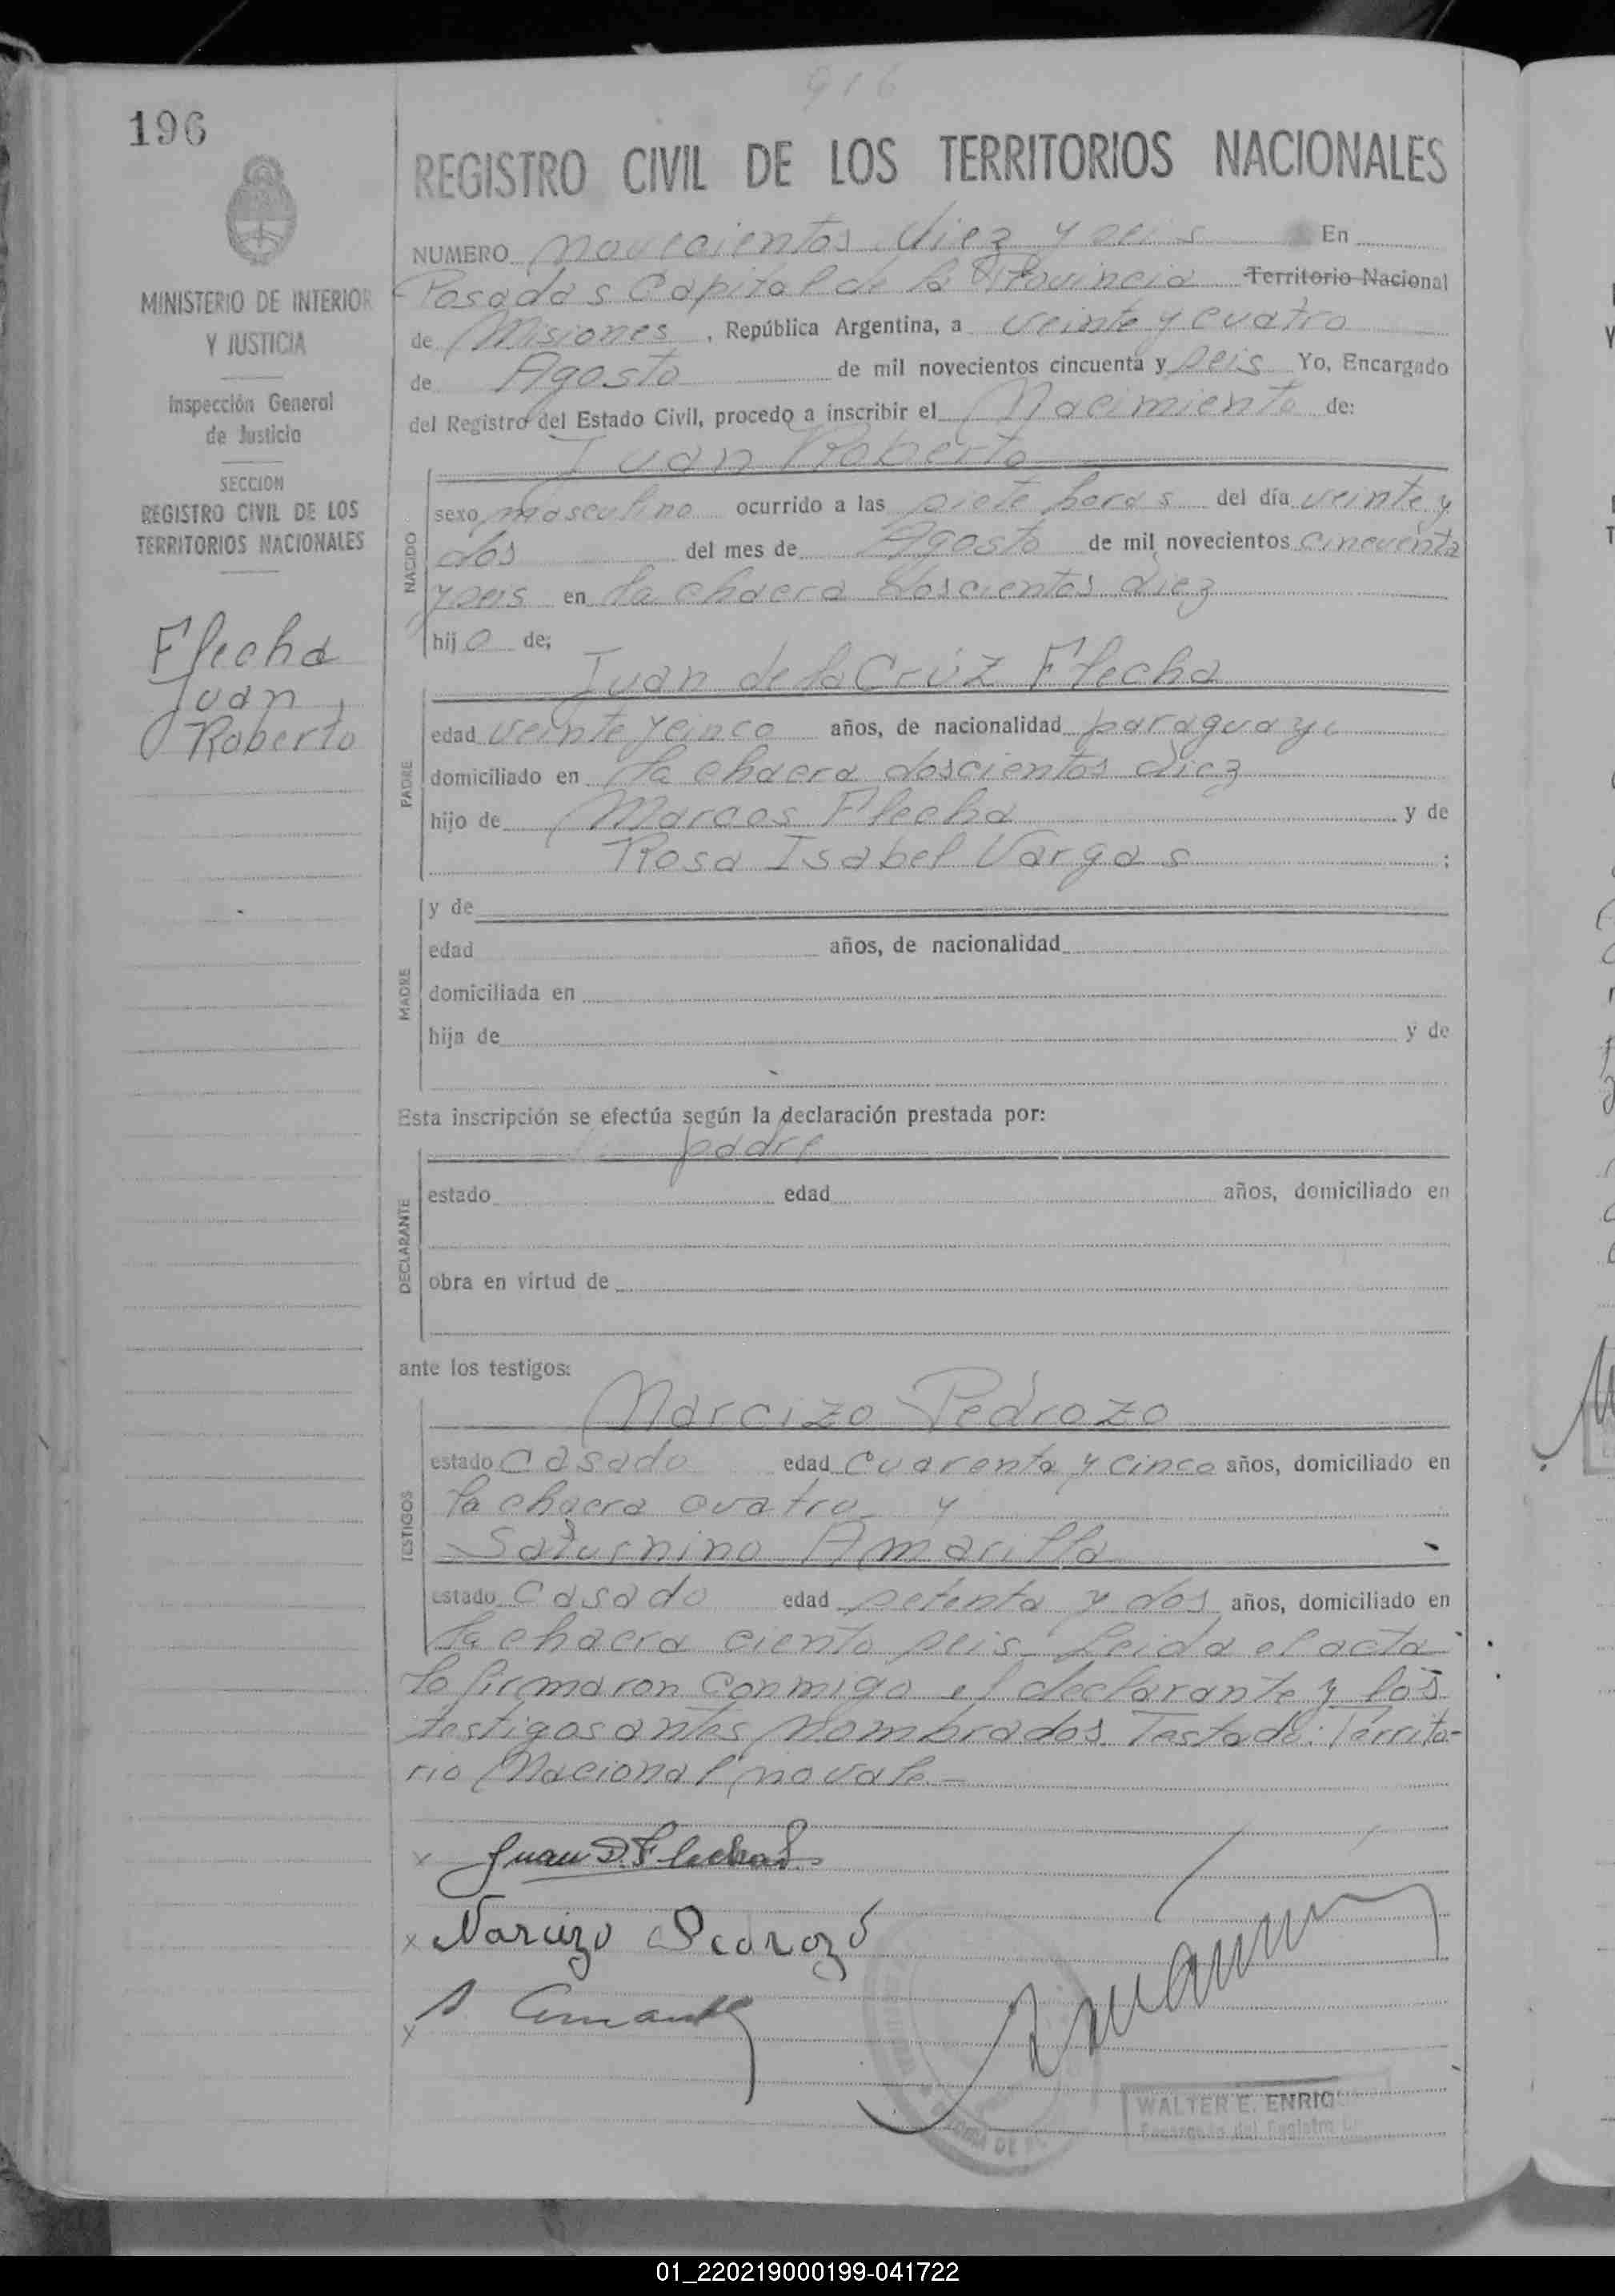 916
196
REGISTRO CIVIL DE LOS TERRITORIOS NACIONALES
MINISTERIO DE INTERIOR
Y JUSTICIA
Inspección General
de Justicia
SECCION
REGISTRO CIVIL DE LOS
TERRITORIOS NACIONALES
Flecha
Juan,
Roberto
NUMERO novecientos diez y seis En
Posadas Capital de la Provincia Territorio Nacional
de Misiones, República Argentina, a veinte y cuatro
de Agosto de mil novecientos cincuenta y seis Yo, Encargado
del Registro del Estado Civil, procedo a inscribir el Nacimiento de:
Juan Roberto
NACIDO
sexo masculino ocurrido a las siete horas del día veinte y
dos del mes de Agosto de mil novecientos cincuenta
y seis en la chacra doscientos diez
hijo de;
Juan de la Cruz Flecha
PADRE
edad veinte y cinco años, de nacionalidad paraguaya
domiciliado en la chacra doscientos diez
hijo de Marcos Flecha y de
Rosa Isabel Vargas ;
MADRE
y de
edad años, de nacionalidad
domiciliada en
hija de y de
Esta inscripción se efectúa según la declaración prestada por:
padre
DECLARANTE
estado edad años, domiciliado en
obra en virtud de
ante los testigos:
Narcizo Pedrozo
TESTIGOS
estado casado edad cuarenta y cinco años, domiciliado en
la chacra cuatro y
Saturnino Amarilla
estado casado edad setenta y dos años, domiciliado en
la chacra ciento seis. Leida el acta
la firmaron conmigo el declarante y los
testigos antes nombrados. Testado: Territo-
rio Nacional no vale.-
x Juan D. Flecha
x Narcizo Pedrozo
x S.
WALTER E. ENRIQ
Encargado del Registro
01_220219000199-041722